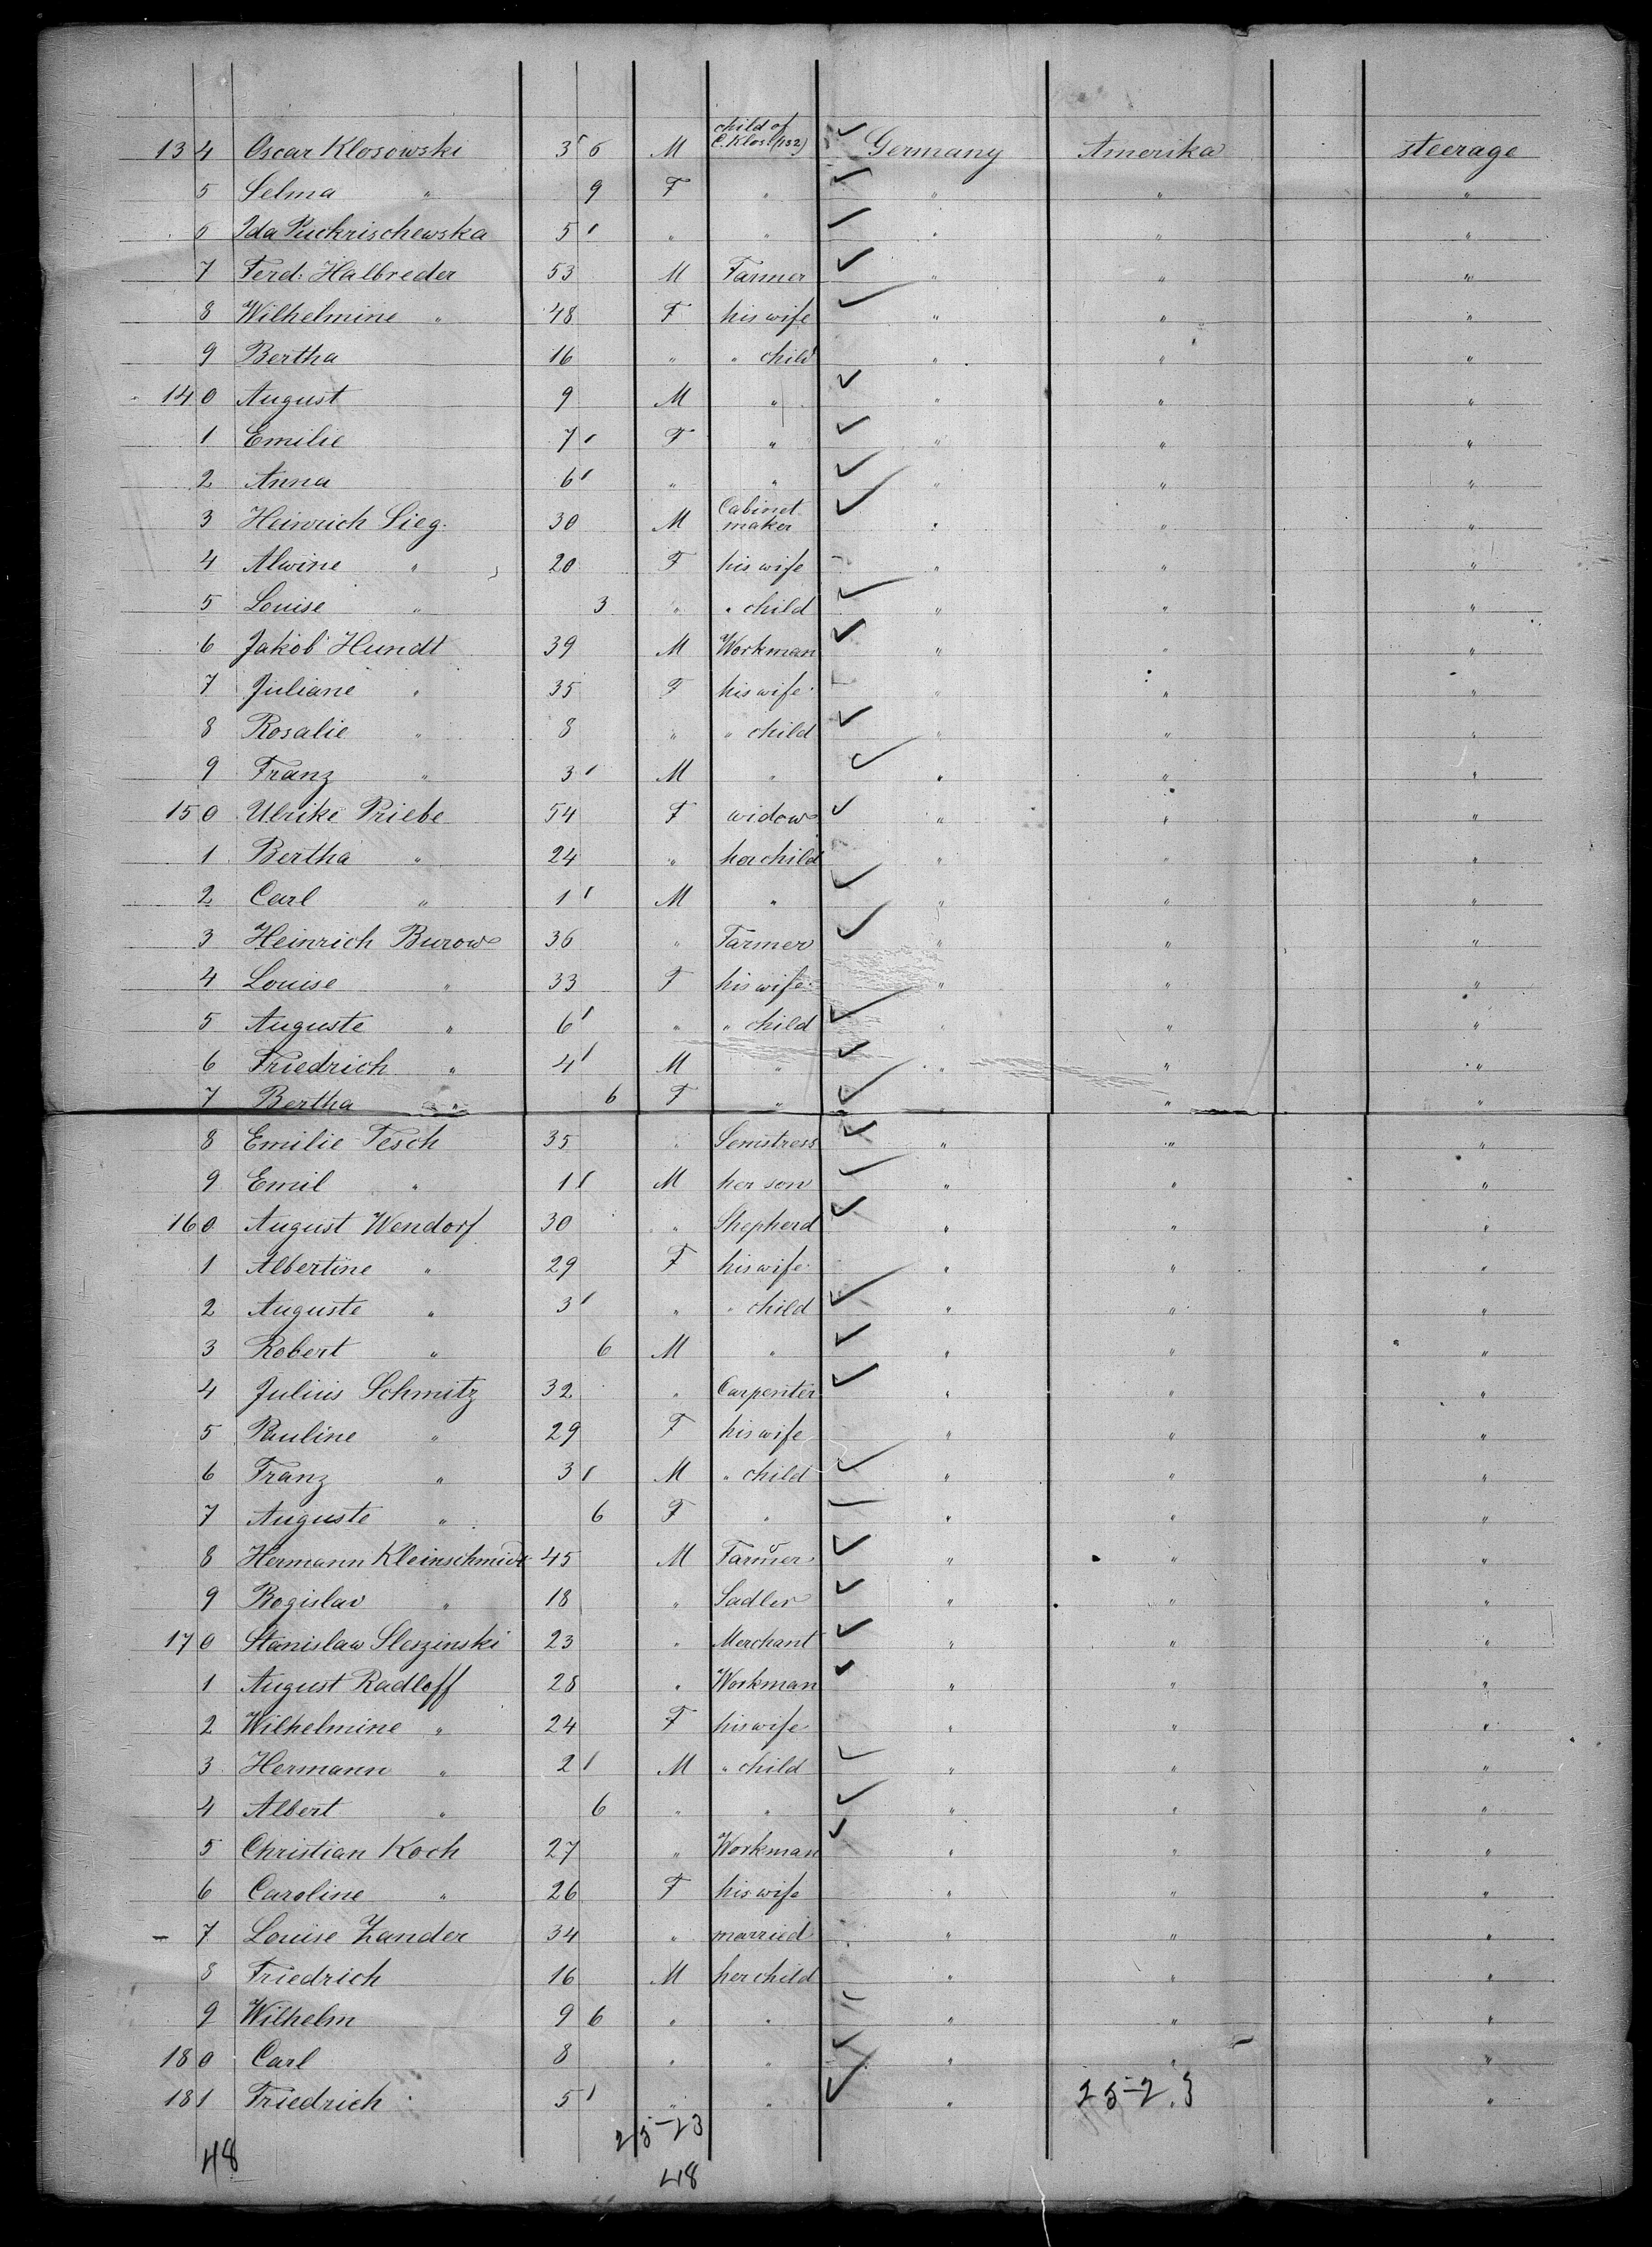 134 Oscar Klosowski 3 6 M child of C. Klos (132) Germany Amerika steerage
5 Selma " 9 F " " " "
6 Ida Puckrischewska 5 " " " " "
7 Ferd: Halbreder 53 M Farmer " " "
8 Wilhelmine " 48 F his wife " " "
9 Bertha 16 " " child " " "
140 August 9 M " " " "
1 Emilie 7 F " " " "
2 Anna 6 " " " " "
3 Heinrich Sieg 30 M Cabinet maker " " "
4 Alwine " 20 F his wife " " "
5 Louise " 3 " " child " " "
6 Jakob Hundt 39 M Workman " " "
7 Juliane " 35 F his wife " " "
8 Rosalie " 8 " " child " " "
9 Franz " 3 M " " " "
150 Ulrike Priebe 54 F widow " " "
1 Bertha " 24 " her child " " "
2 Carl " 1 M " " " "
3 Heinrich Burow 36 " Farmer " " "
4 Louise " 33 F his wife " " "
5 Auguste " 6 " " child " " "
6 Friedrich " 4 M " " " "
7 Bertha " 6 F " " " "
8 Emilie Tesch 35 " Semstress " " "
9 Emil " 1 M her son " " "
160 August Wendorf 30 " Shepherd " " "
1 Albertine " 29 F his wife " " "
2 Auguste " 3 " " child " " "
3 Robert " 6 M " " " "
4 Julius Schmitz 32 " Carpenter " " "
5 Pauline " 29 F his wife " " "
6 Franz " 3 M " child " " "
7 Auguste " 6 F " " " "
8 Hermann Kleinschmidt 45 M Farmer " " "
9 Bogislav " 18 " Sadler " " "
170 Stanislaw Sleszinski 23 " Merchant " " "
1 August Radloff 28 " Workman " " "
2 Wilhelmine " 24 F his wife " " "
3 Hermann " 2 M " child " " "
4 Albert " 6 " " " " "
5 Christian Koch 27 " Workman " " "
6 Caroline " 26 F his wife " " "
7 Louise Zander 34 " married " " "
8 Friedrich 16 M her child " " "
9 Wilhelm 9 6 " " " " "
180 Carl 8 " " " " "
181 Friedrich 5 " " " 25-23 "
25-23
48 48